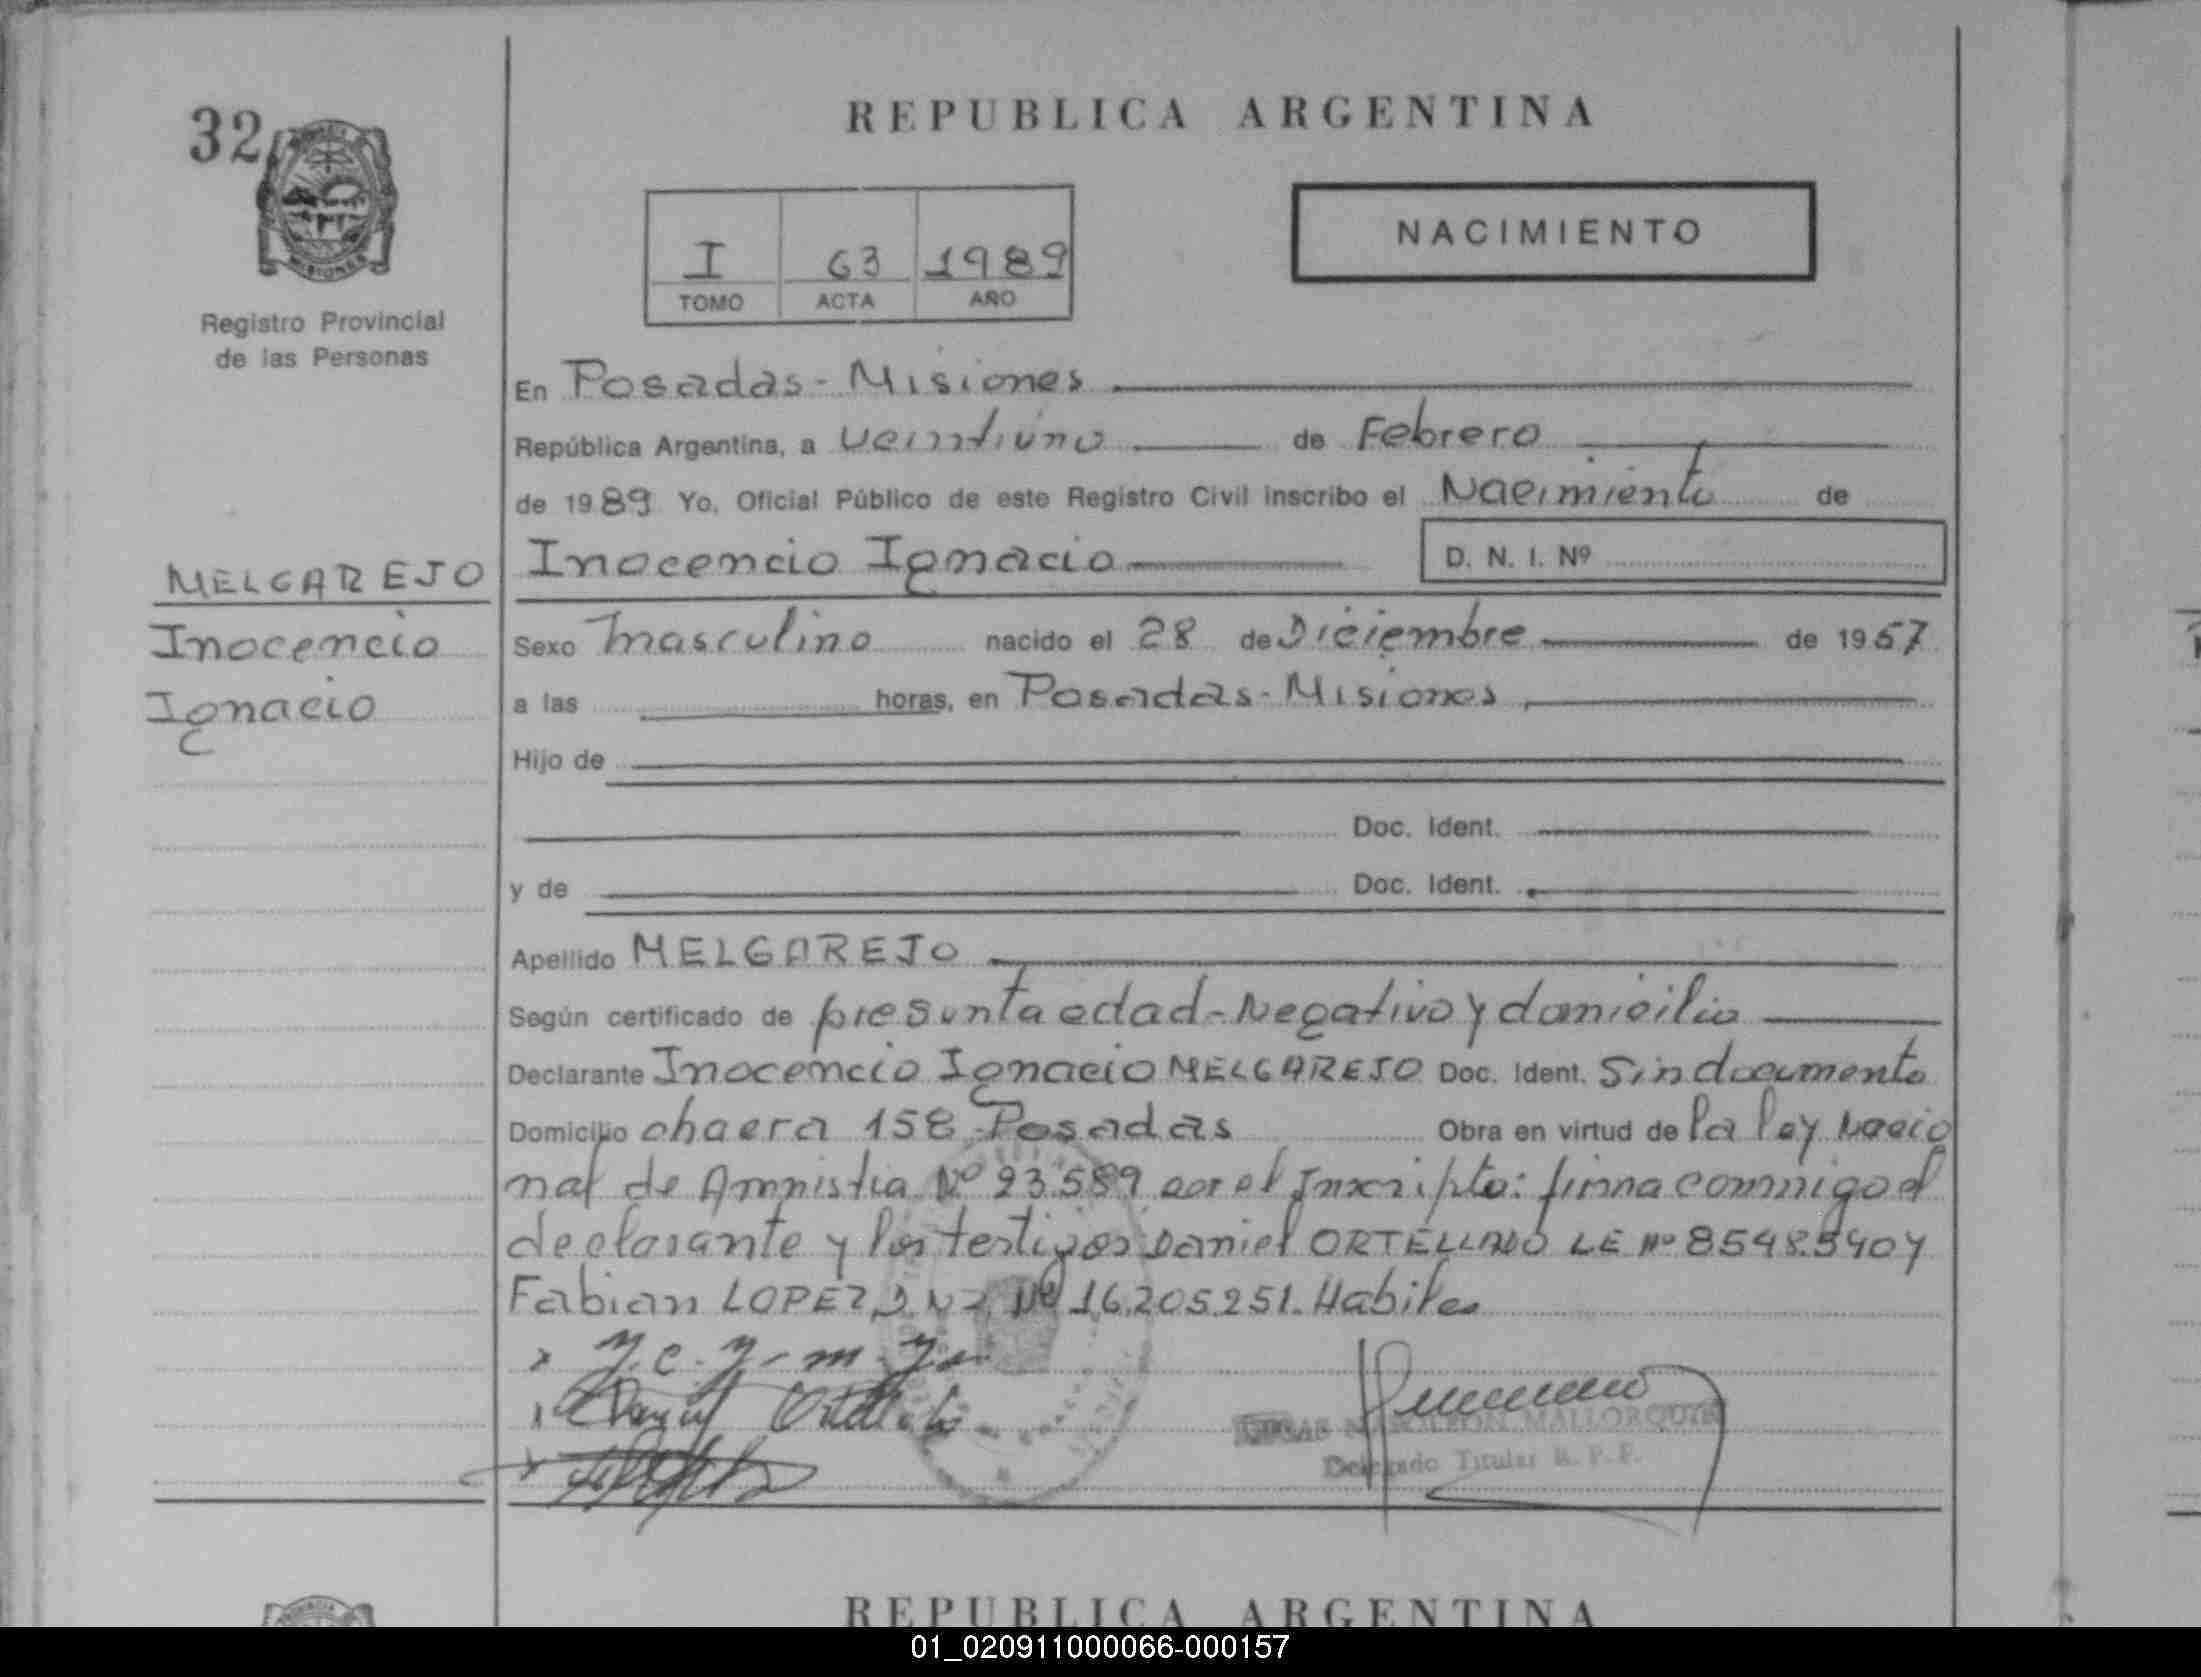 REPUBLICA ARGENTINA
32
MISIONES
Registro Provincial
de las Personas
I 63 1989
TOMO ACTA AÑO
NACIMIENTO
En Posadas - Misiones
República Argentina, a veintiuno de Febrero
de 1989 Yo, Oficial Público de este Registro Civil inscribo el Nacimiento de
Inocencio Ignacio D. N. I. Nº
MELGAREJO
Inocencio
Ignacio
Sexo masculino nacido el 28 de Diciembre de 1957
a las horas, en Posadas - Misiones
Hijo de
Doc. Ident.
y de Doc. Ident.
Apellido MELGAREJO
Según certificado de presunta edad - Negativo y domicilio
Declarante Inocencio Ignacio MELGAREJO Doc. Ident. Sin documento
Domicilio chacra 158 - Posadas Obra en virtud de la ley nacio
nal de Amnistia Nº 23.589 por el Inscripto: firma conmigo el
declarante y los testigos Daniel ORTELLADO LE Nº 8.548.540 y
Fabian LOPEZ D N I Nº 16.205.251. Habiles
Daniel Ortellado
NAPOLEON MALLORQUIN
Delegado Titular R. P. P.
REPUBLICA ARGENTINA
01_020911000066-000157